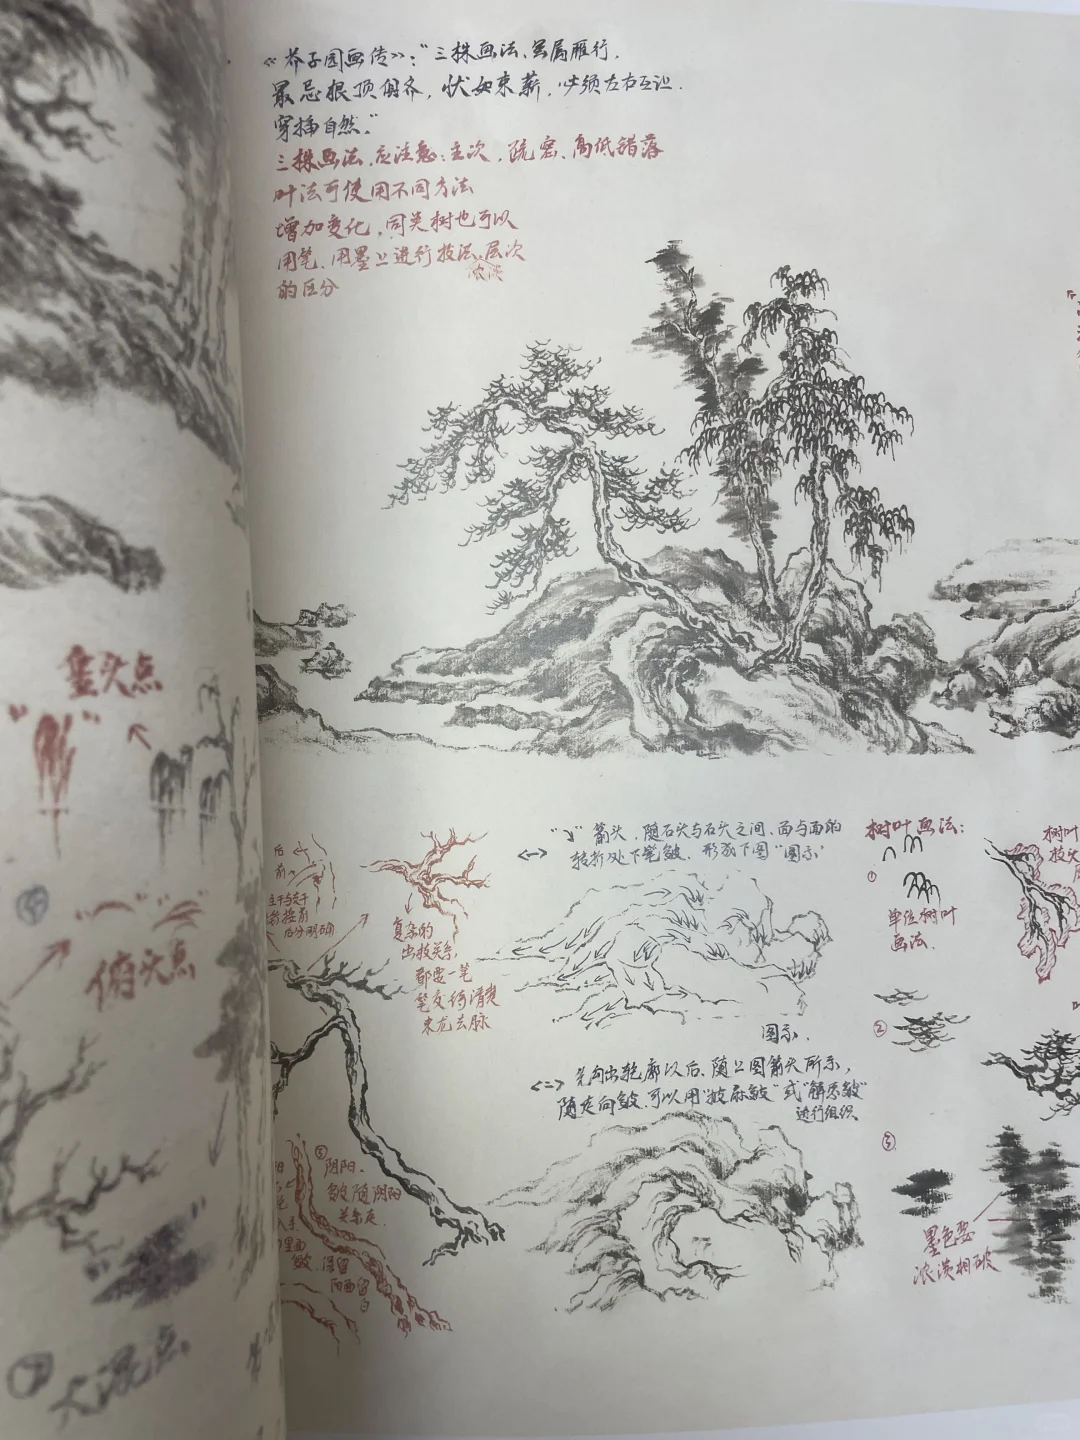 《芥子园画传》：“三株画法、虽属雁行，
最忌根顶俱齐，状如束薪，必须左右互让.
穿插自然。”
三株画法，应注意：主次，疏密、高低错落
叶法可使用不同方法
增加变化，同类树也可以
用笔、用墨上进行技法、层次
浓淡
的区分
垂头点
俯头点
大混点
后
前
主干与支干
后分明确
复杂的
出枝关系，
都要一笔
笔交待清楚
来龙去脉
③ 阴阳、
皴随阴阳
关系走.
里面
皴. 保留
阳面留
白
<一> “ ” 箭头，随石头与石头之间、面与面的
转折处下笔皴. 形成下图“图示”
图示.
<二> 先勾出轮廓以后、随上图箭头所示，
随走向皴.可以用“披麻皴”或“解索皴”
进行组织
树叶画法：
①
单位树叶
画法.
②
③
墨色要
浓淡相破
树叶
枝头